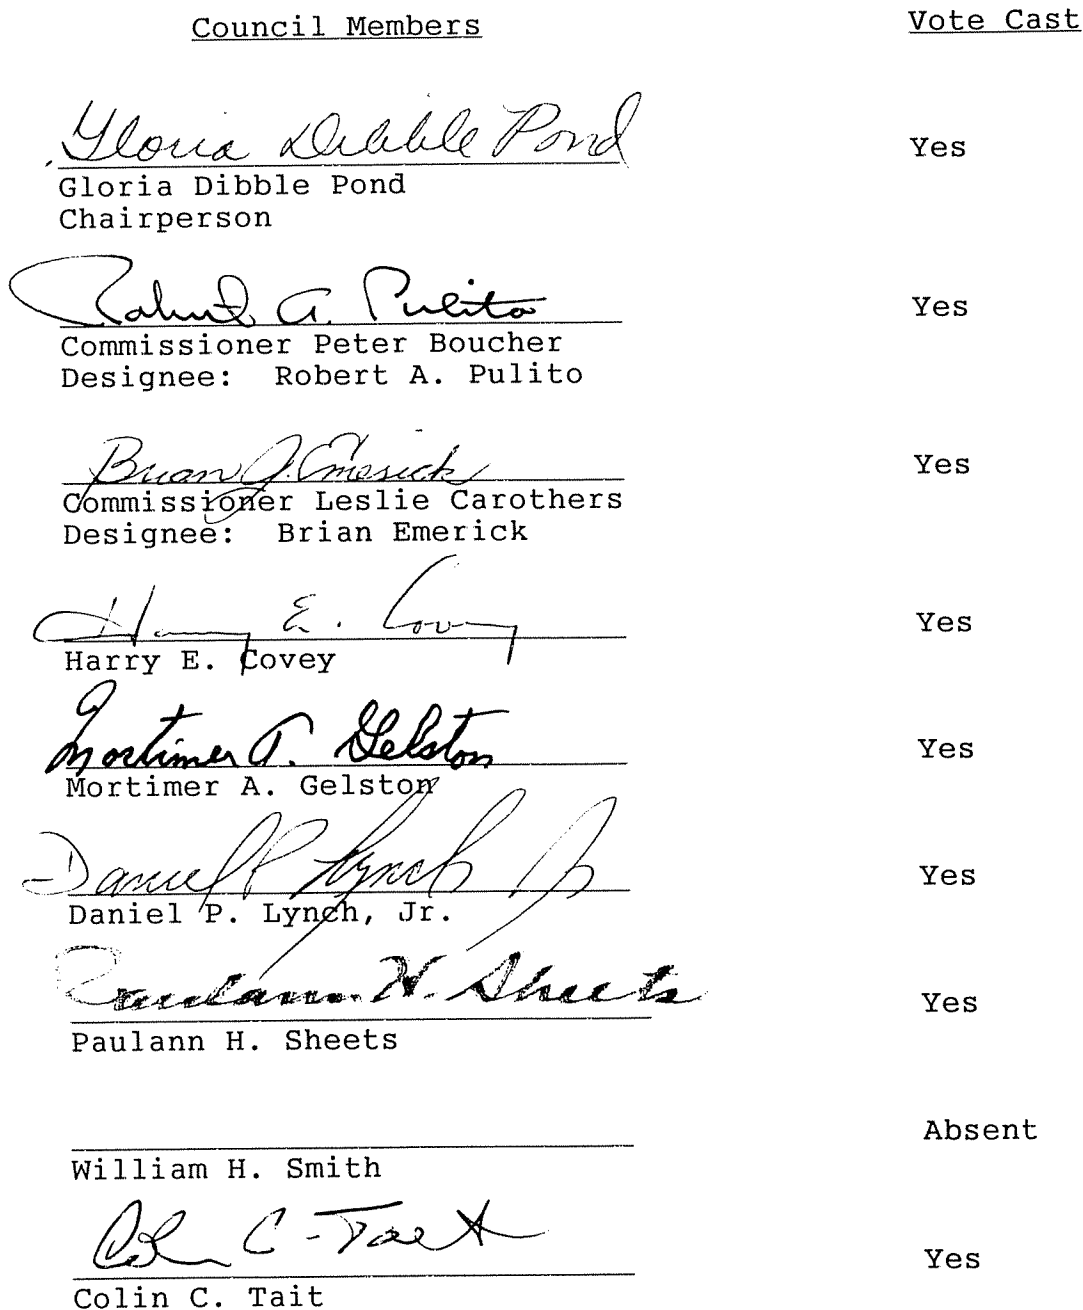 Council Members Vote Cast
Gloria Dibble Pond Yes
Gloria Dibble Pond
Chairperson
Robert A. Pulito Yes
Commissioner Peter Boucher
Designee: Robert A. Pulito
Brian J. Emerick Yes
Commissioner Leslie Carothers
Designee: Brian Emerick
Harry E. Covey Yes
Harry E. Covey
Mortimer A. Gelston Yes
Mortimer A. Gelston
Daniel P. Lynch Jr Yes
Daniel P. Lynch, Jr.
Paulann H. Sheets Yes
Paulann H. Sheets
Absent
William H. Smith
Colin C. Tait Yes
Colin C. Tait